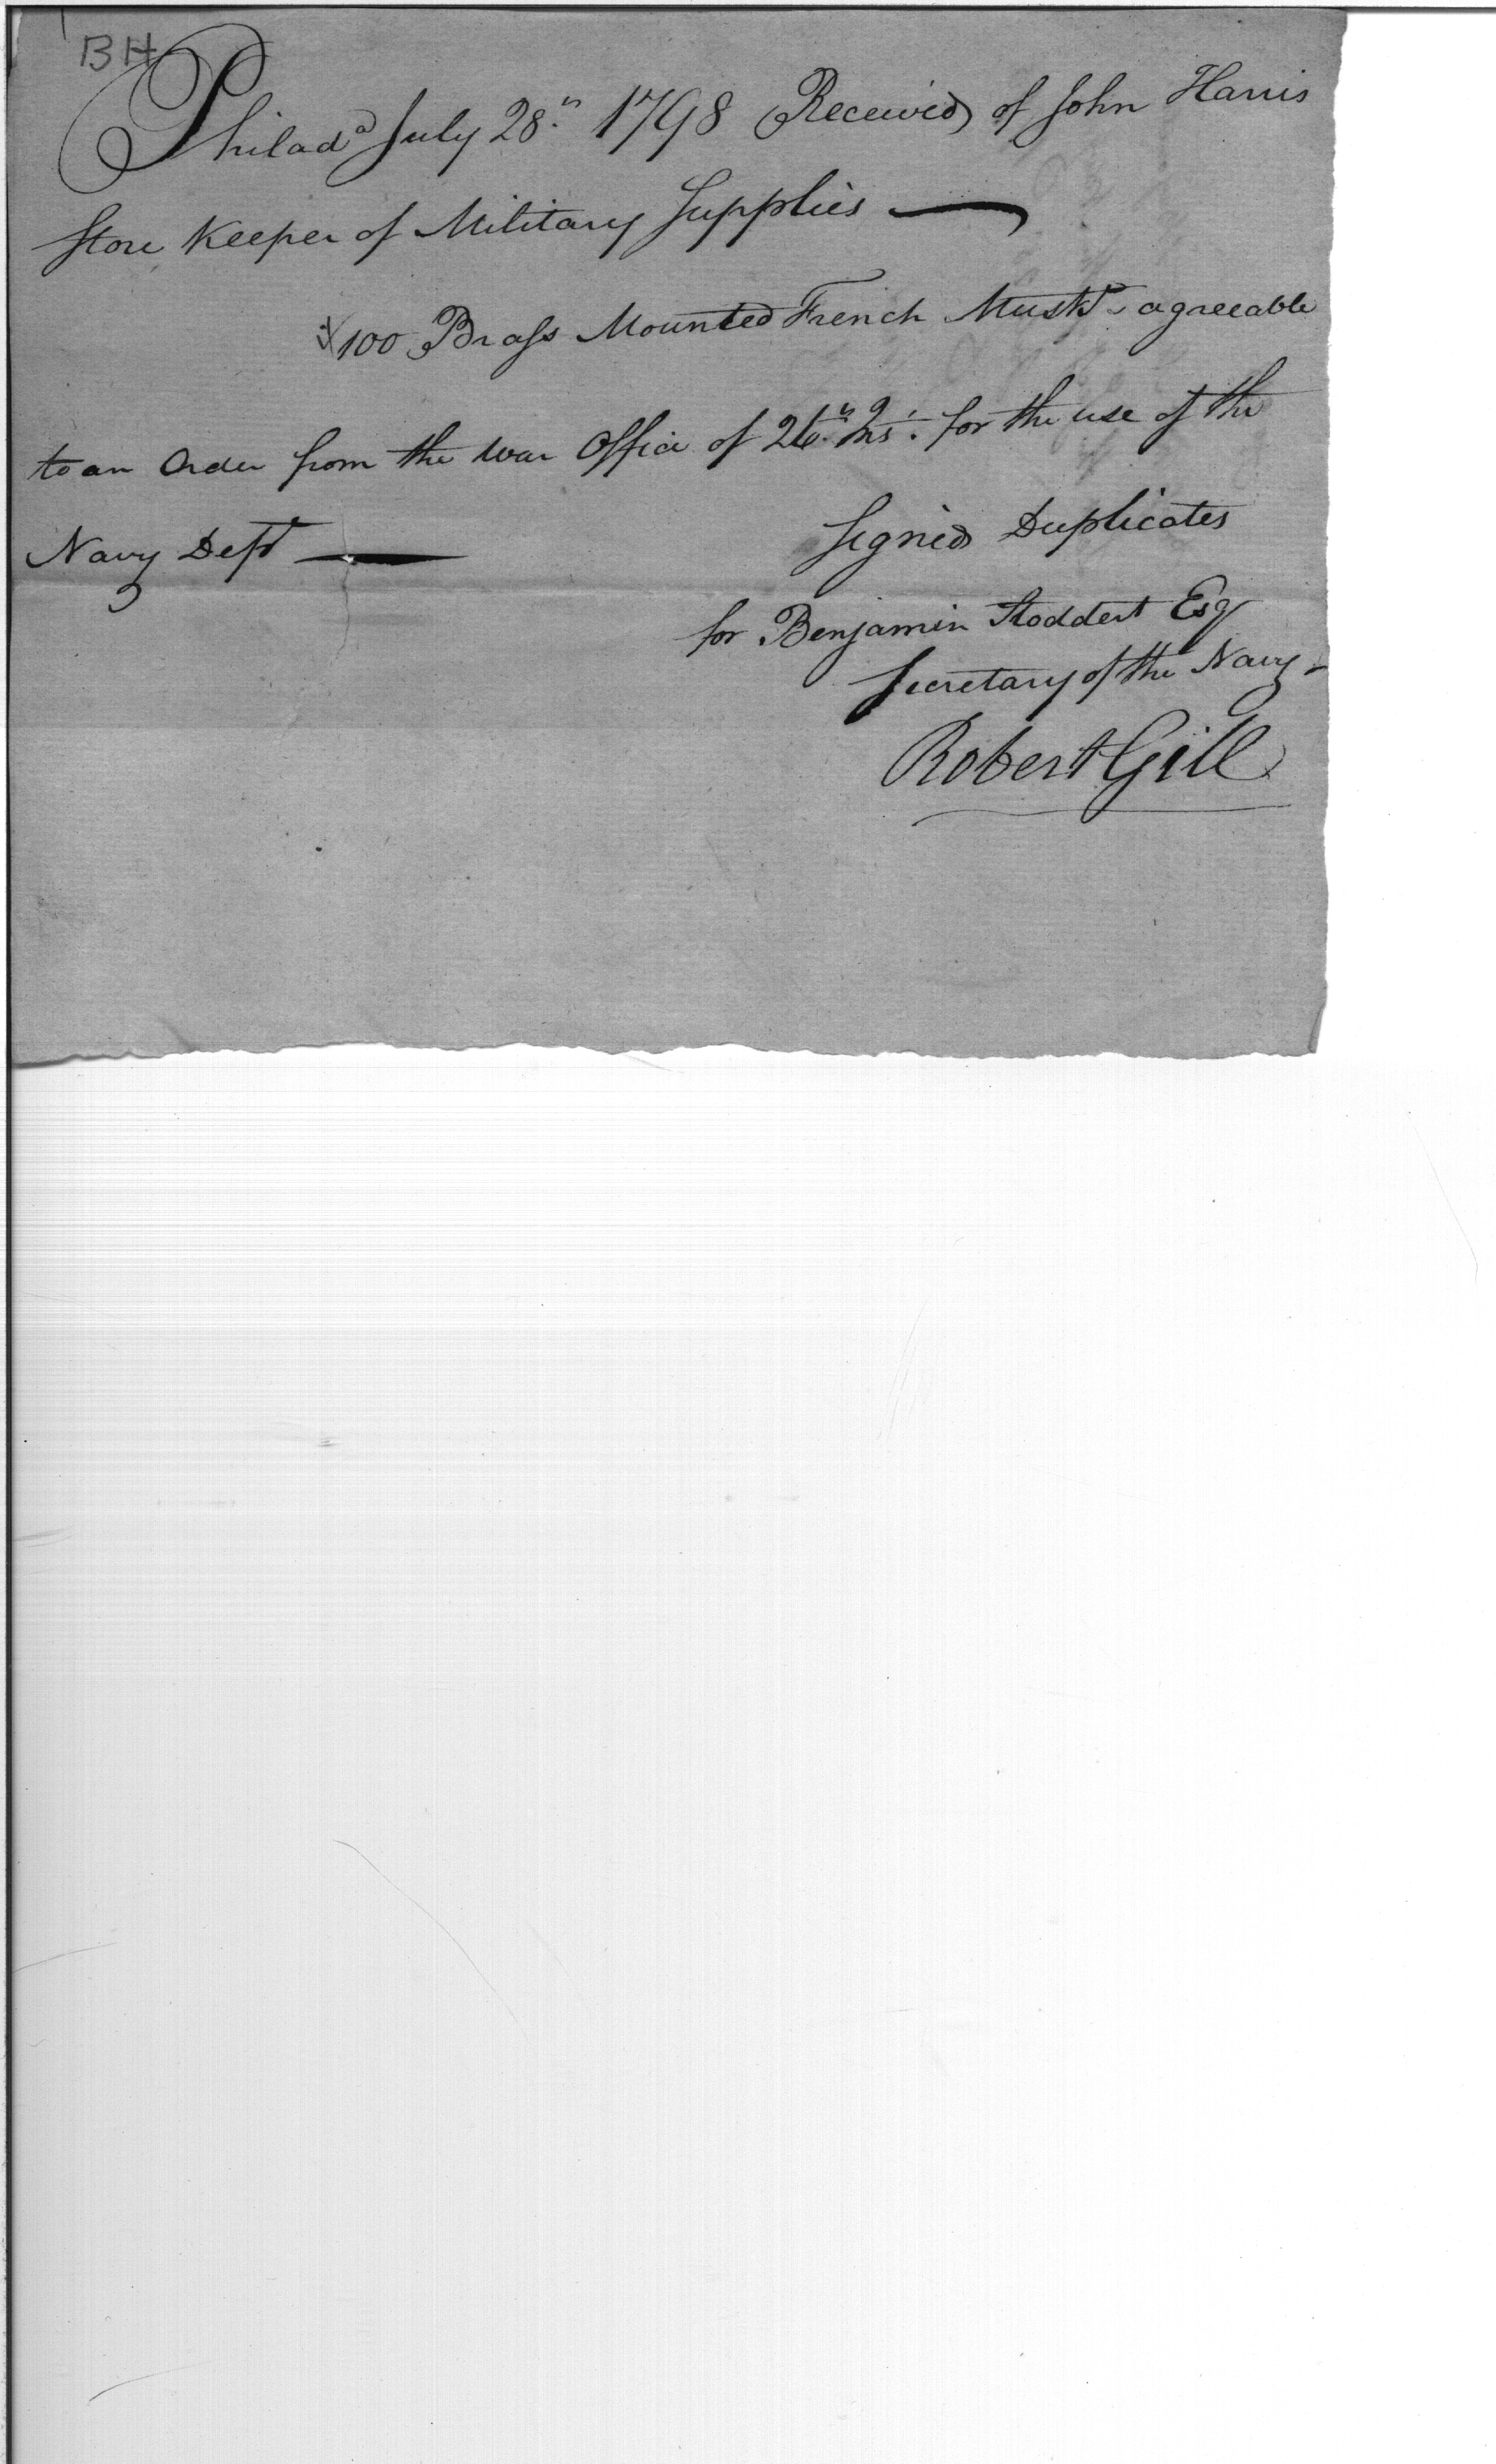 BH
Philad^a July 28^th 1798 Received of John Harris
Store Keeper of Military Supplies
100 Brass Mounted French Musk^ts agreeable
to an Order from the War Office of 26^th Ins^t. for the use of the
Navy Dep^t
Signed Duplicates
for Benjamin Stoddert Esq^r
Secretary of the Navy
Robert Gill